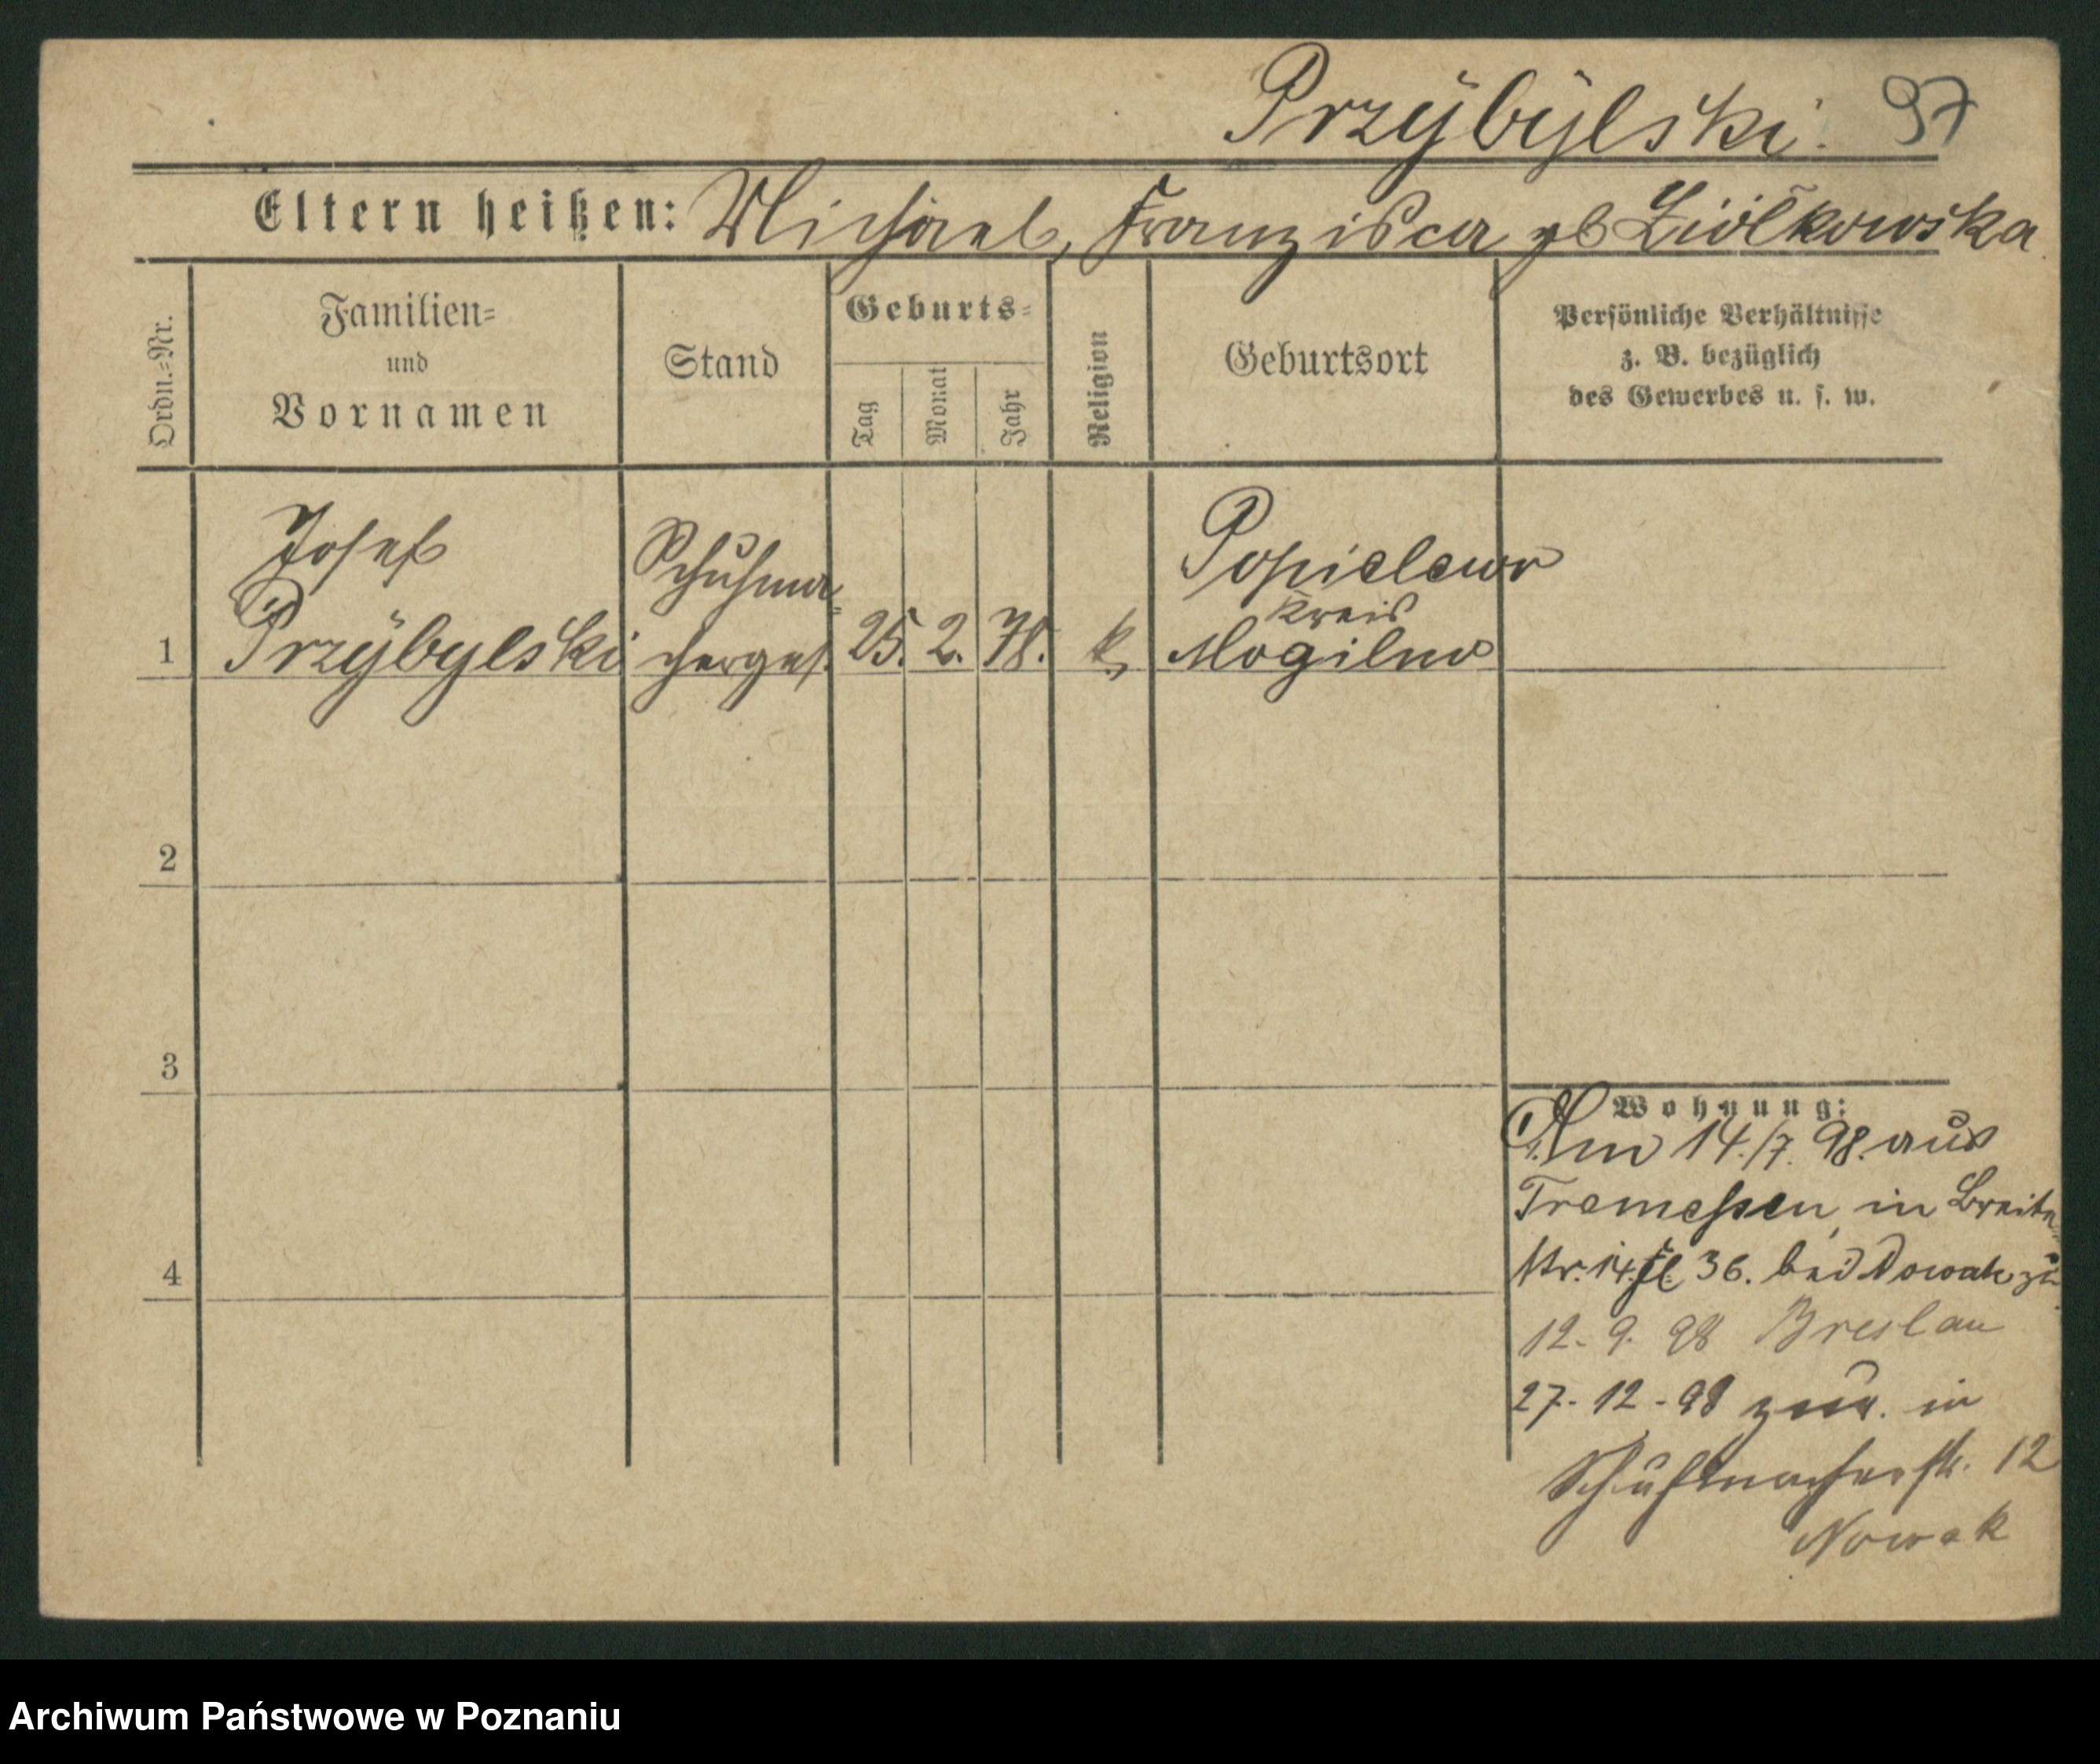 Przÿbÿlski. 97
Eltern heißen: Michael, Franzisca gb Ziólkowska
Ordn.-Nr.
Familien-
und
Vornamen
Stand
Geburts-
Tag
Monat
Jahr
Religion
Geburtsort
Persönliche Verhältnisse
z. B. bezüglich
des Gewerbes u. s. w.
1
Josef
Przÿbylski
Schuhma-
cherges.
25. 2. 78.
k.
Popielewo
Kreis
Mogilno
2
3
4
Wohnung:
Am 14./7. 98. aus
Tremessen in Breite-
str. 14. 36. bei Nowak zu
12. 9. 98 Breslau
27. 12 - 98 zur. in
Schuhmacherstr. 12
Nowak
Archiwum Państwowe w Poznaniu